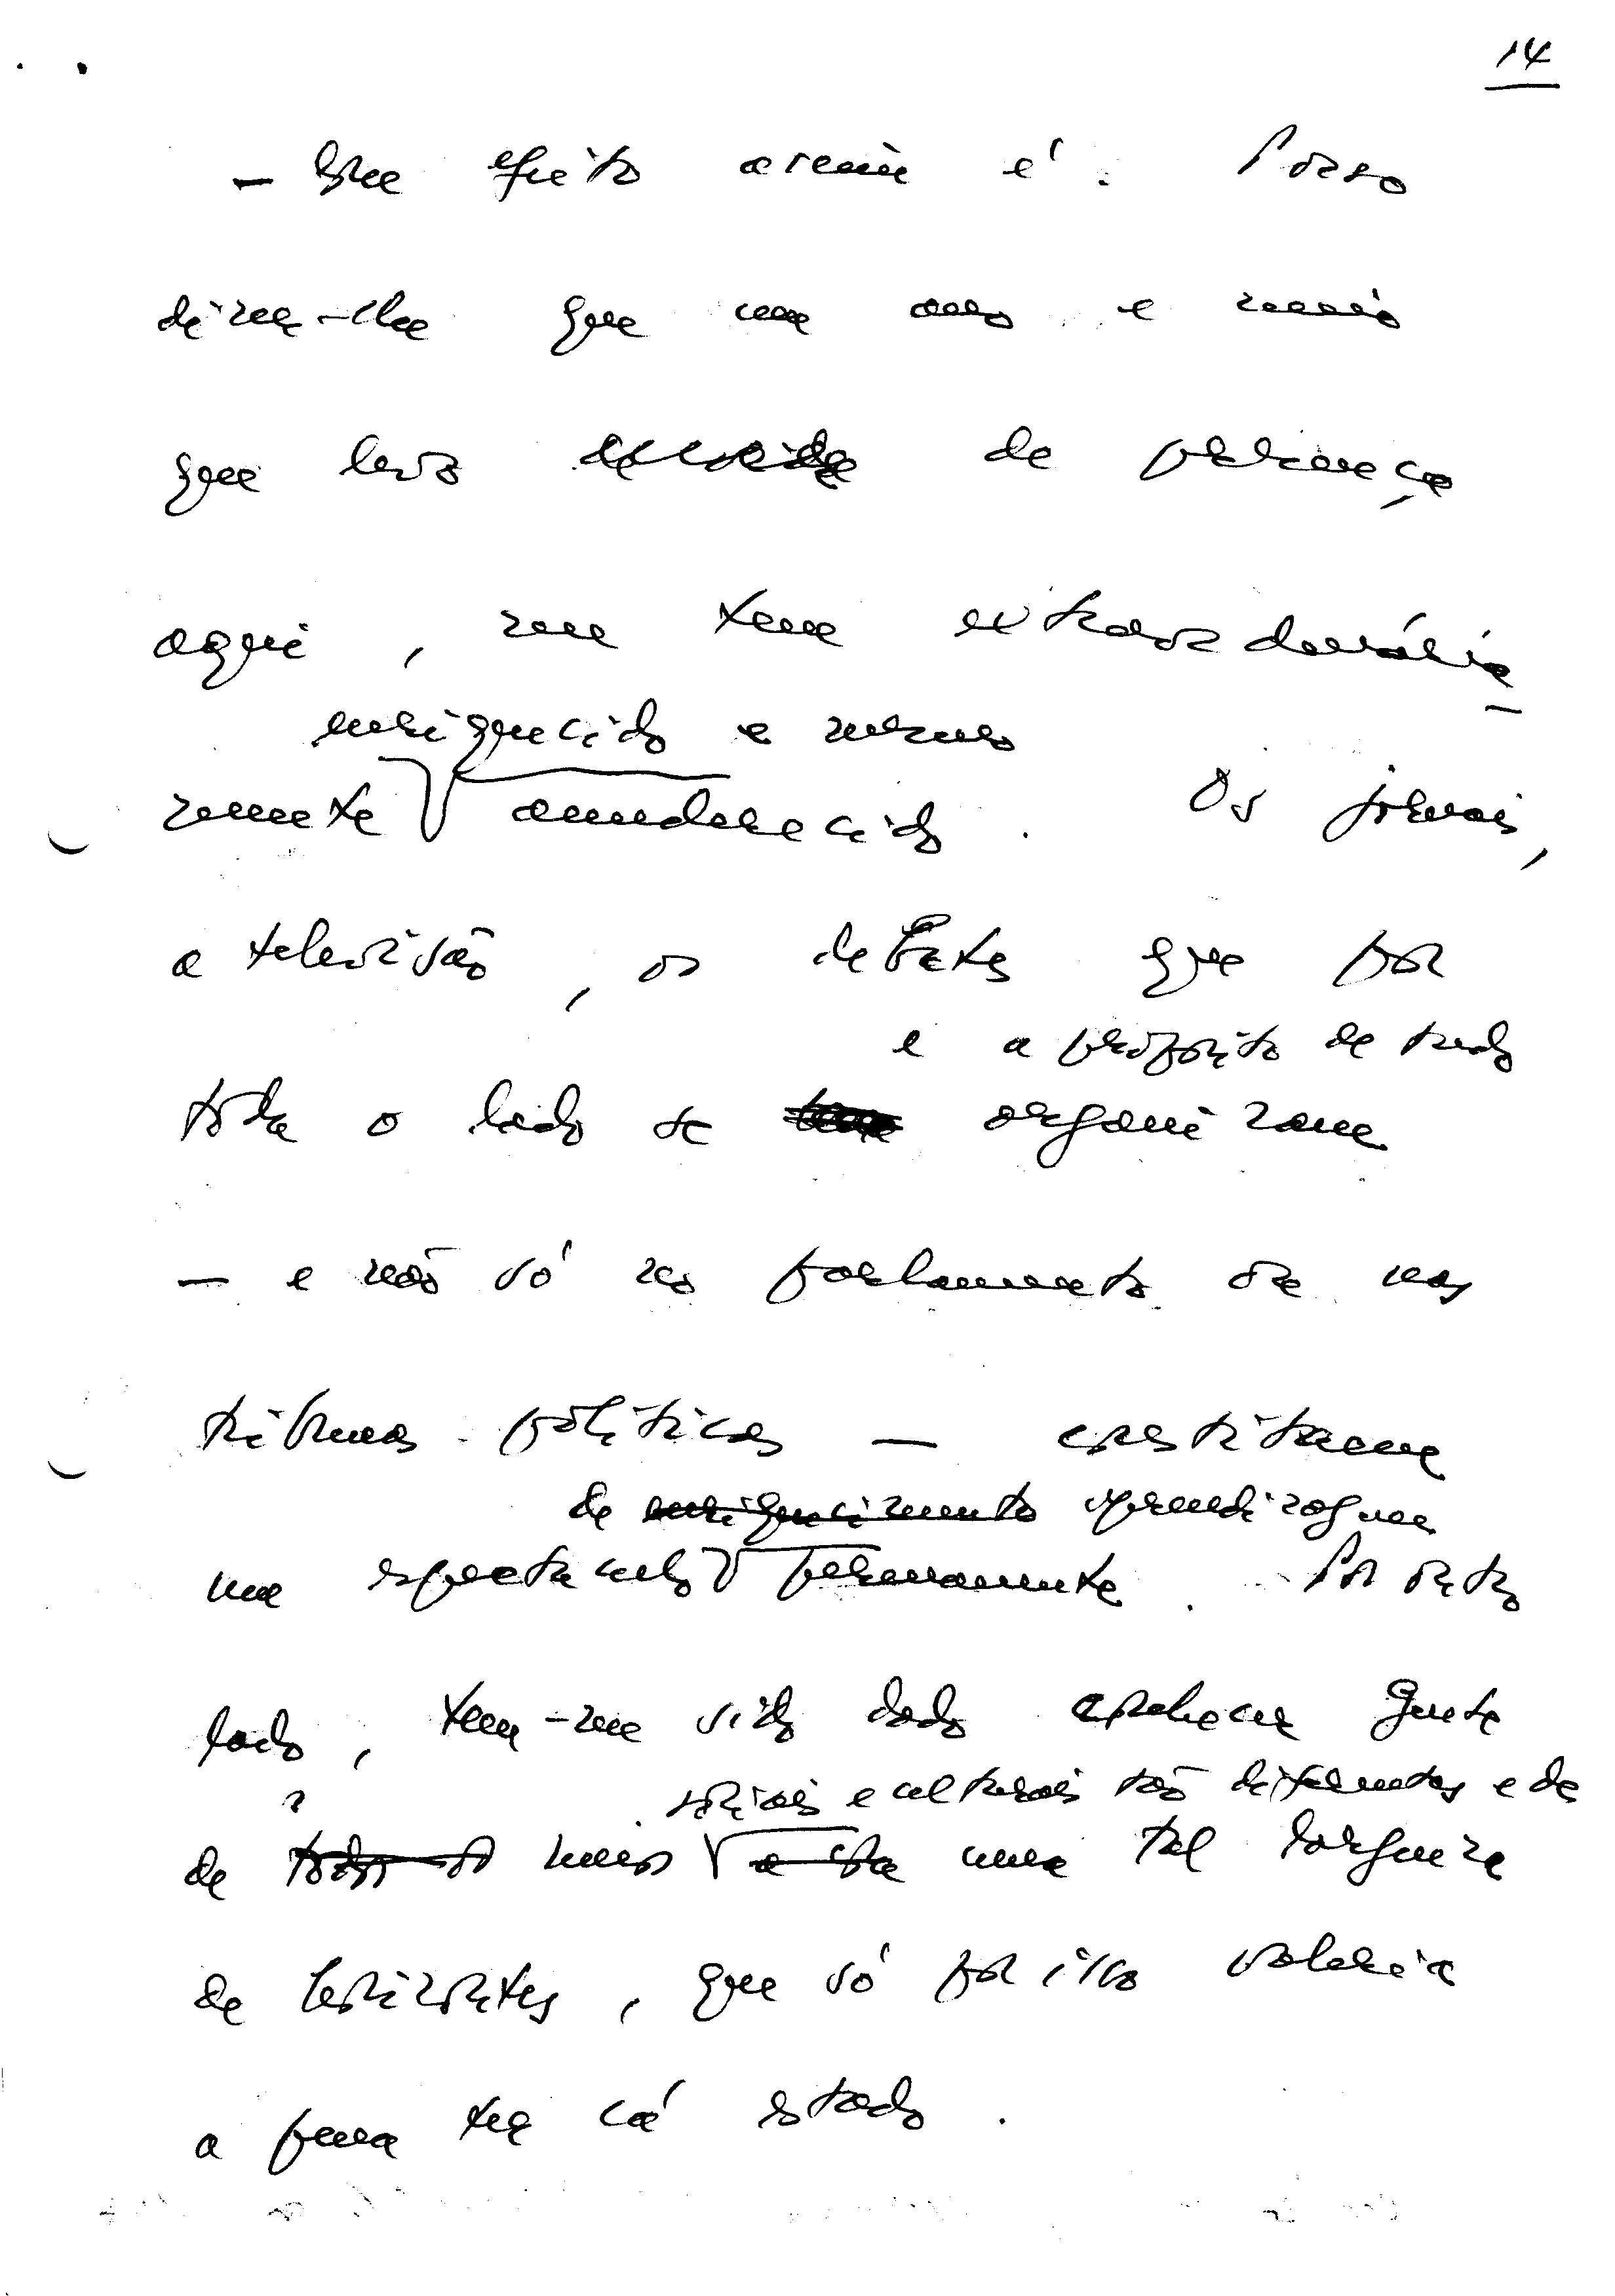 14
— Com efeito assim é. Posso
dizer-lhe que um ano e meio
que levo de presença
aqui, me tem extraordinária
enriquecido e mesmo
mente amadurecido. Os jornais,
a televisão, os debates que por
e a propósito de tudo
todo o lado se organizam
— e não só no parlamento ou nas
tribunas políticas — constituem
de enriquecimento aprendizagem
um espectáculo permanente. Por outro
lado, tem-me sido dado conhecer gente
sociais e culturais tão diferentes e de
de meios uma tal largueza
de horizontes, que só por isso valeria
a pena ter cá estado.